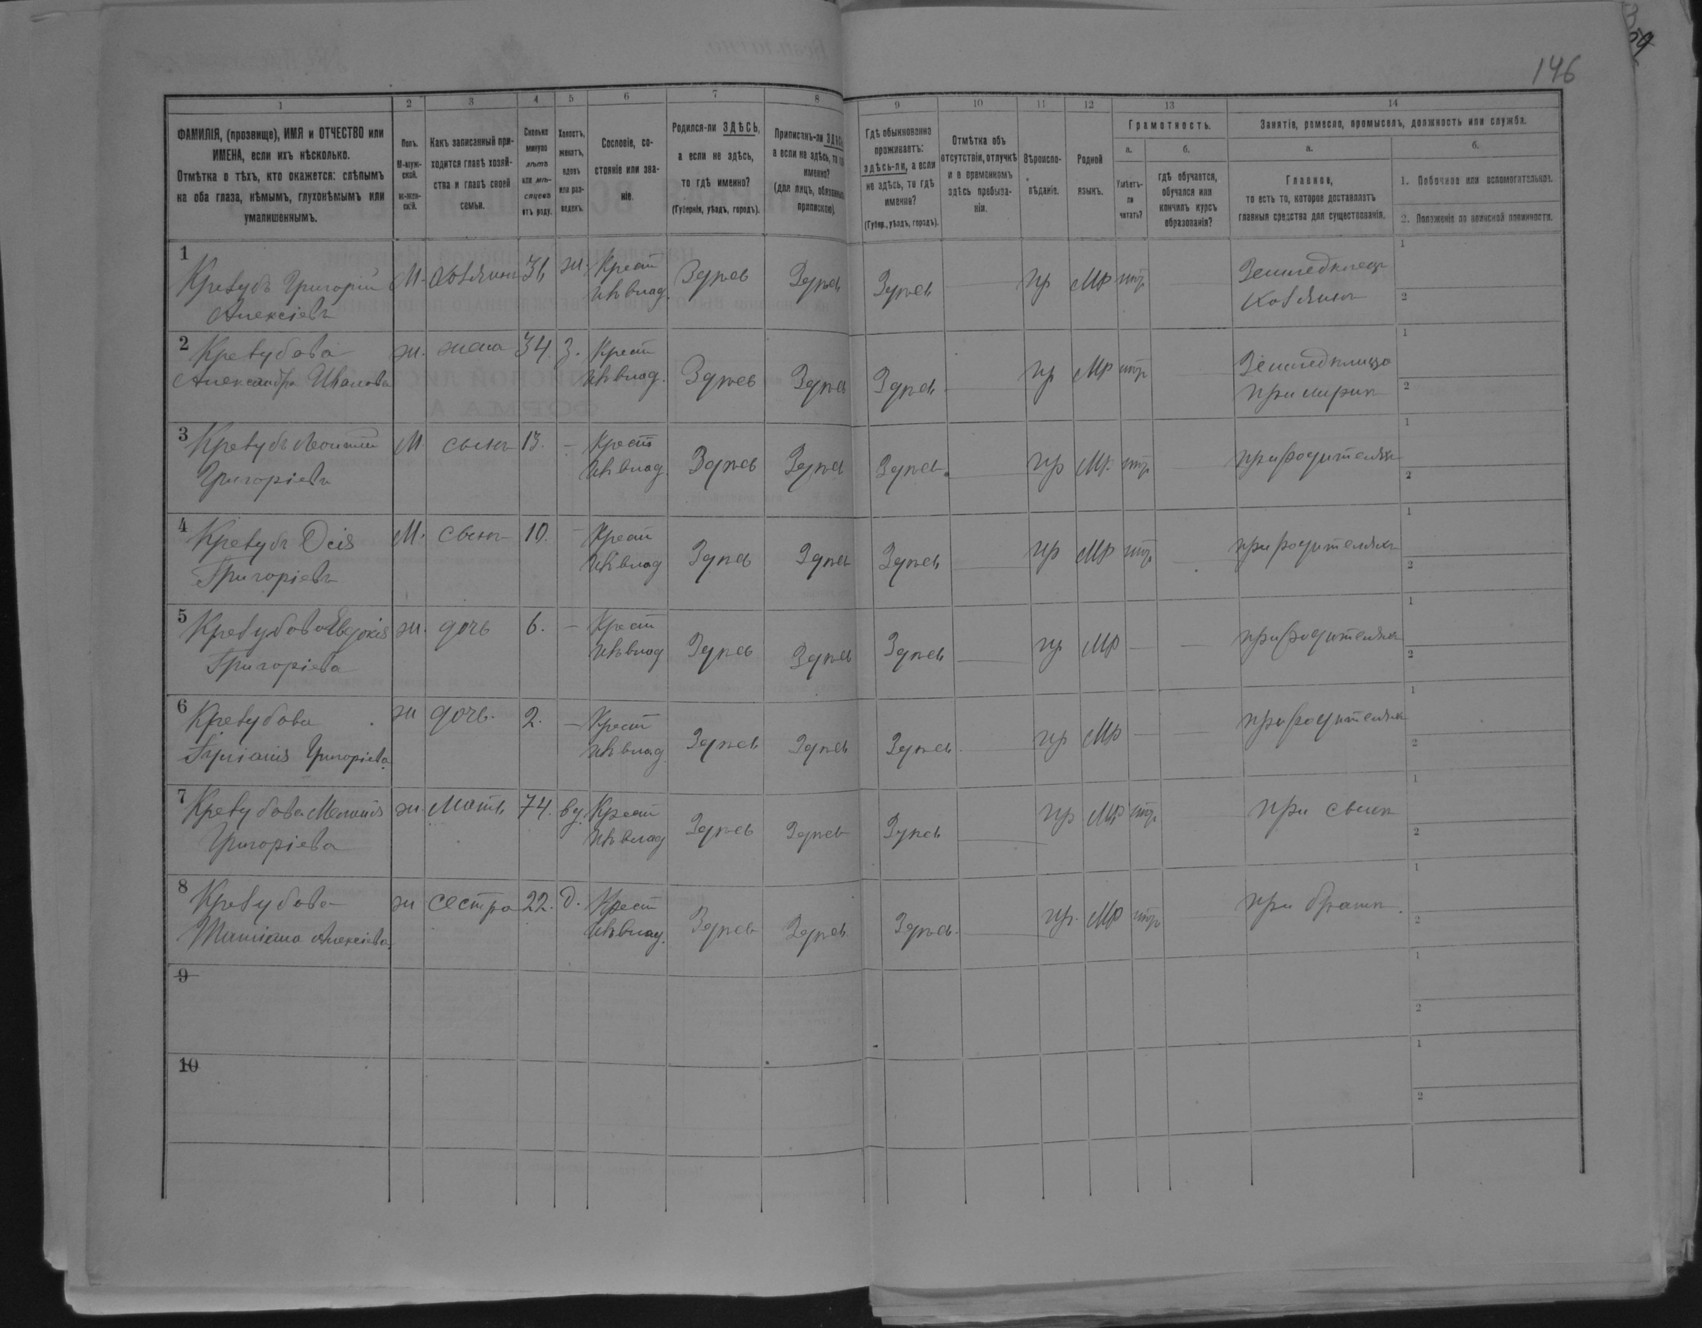 146
1 2 3 4 5 6 7 8 9 10 11 12 13 14
ФАМИЛІЯ, (прозвище), ИМЯ и ОТЧЕСТВО или
ИМЕНА, если ихъ нѣсколько.
Отмѣтка о тѣхъ, кто окажется: слѣпымъ
на оба глаза, нѣмымъ, глухонѣмымъ или
умалишеннымъ.
Полъ.
М-муж-
ской.
ж-жен-
скій.
Какъ записанный при-
ходится главѣ хозяй-
ства и главѣ своей
семьи.
Сколько
минуло
лѣтъ
или мѣ-
сяцевъ
отъ роду.
Холостъ,
женатъ,
вдовъ
или раз-
веденъ.
Сословіе, со-
стояніе или зва-
ніе.
Родился-ли ЗДѢСЬ,
а если не здѣсь,
то гдѣ именно?
(Губернія, уѣздъ, городъ).
Приписанъ-ли
а если не здѣсь, то
именно?
(для лицъ,
припискою).
Гдѣ обыкновенно
проживаетъ:
здѣсь-ли, а если
не здѣсь, то гдѣ
именно?
(Губер., уѣздъ, городъ).
Отмѣтка объ
отсутствіи, отлучкѣ
и о временномъ
здѣсь пребыва-
ніи.
Вѣроиспо-
вѣданіе.
Родной
языкъ.
Грамотность.
а. б.
Умѣетъ-
ли
читать?
гдѣ обучается,
обучался или
кончилъ курсъ
образованія?
Занятіе, ремесло, промыселъ, должность или служба.
а. б.
Главное,
то есть то, которое доставляетъ
главныя средства для существованія.
1. Побочное или вспомогательное.
2. Положеніе по воинской повинности.
1
Кревубъ Григорій
Алексіевъ
М. хозяинъ 36 ж. Крест Здѣсь Здѣсь Здѣсь пр Мр нѣт Земледѣлецъ
хозяинъ
1
2
2
Кревубова
Александра Иванова
ж. жена 34 з. Крест Здѣсь Здѣсь Здѣсь пр Мр нѣт
1
2
3
Кревубъ Леонтій
Григоріевъ
М. сынъ 13. – Крест Здѣсь Здѣсь Здѣсь пр Мр. нѣт при родителяхъ
1
2
4
Кревубъ
Григоріевъ
М. сынъ 10. – Крест Здѣсь Здѣсь Здѣсь пр Мр нѣт при родителяхъ
1
2
5
Кревубова Евдокія
Григоріева
ж. дочь 6. – Крест Здѣсь Здѣсь Здѣсь пр Мр – при родителяхъ
1
2
6
Кревубова
Григоріева
ж дочь. 2. – Крест Здѣсь Здѣсь Здѣсь пр Мр – при родителяхъ
1
2
7
Кревубова
Григоріева
ж мать 74. вд. Крест Здѣсь Здѣсь Здѣсь пр Мр нѣт при сынѣ
1
2
8
Кревубова
Алексіева
ж сестра 22. д. Крест Здѣсь Здѣсь Здѣсь пр. Мр нѣт при братѣ.
1
2
9
1
2
10
1
2